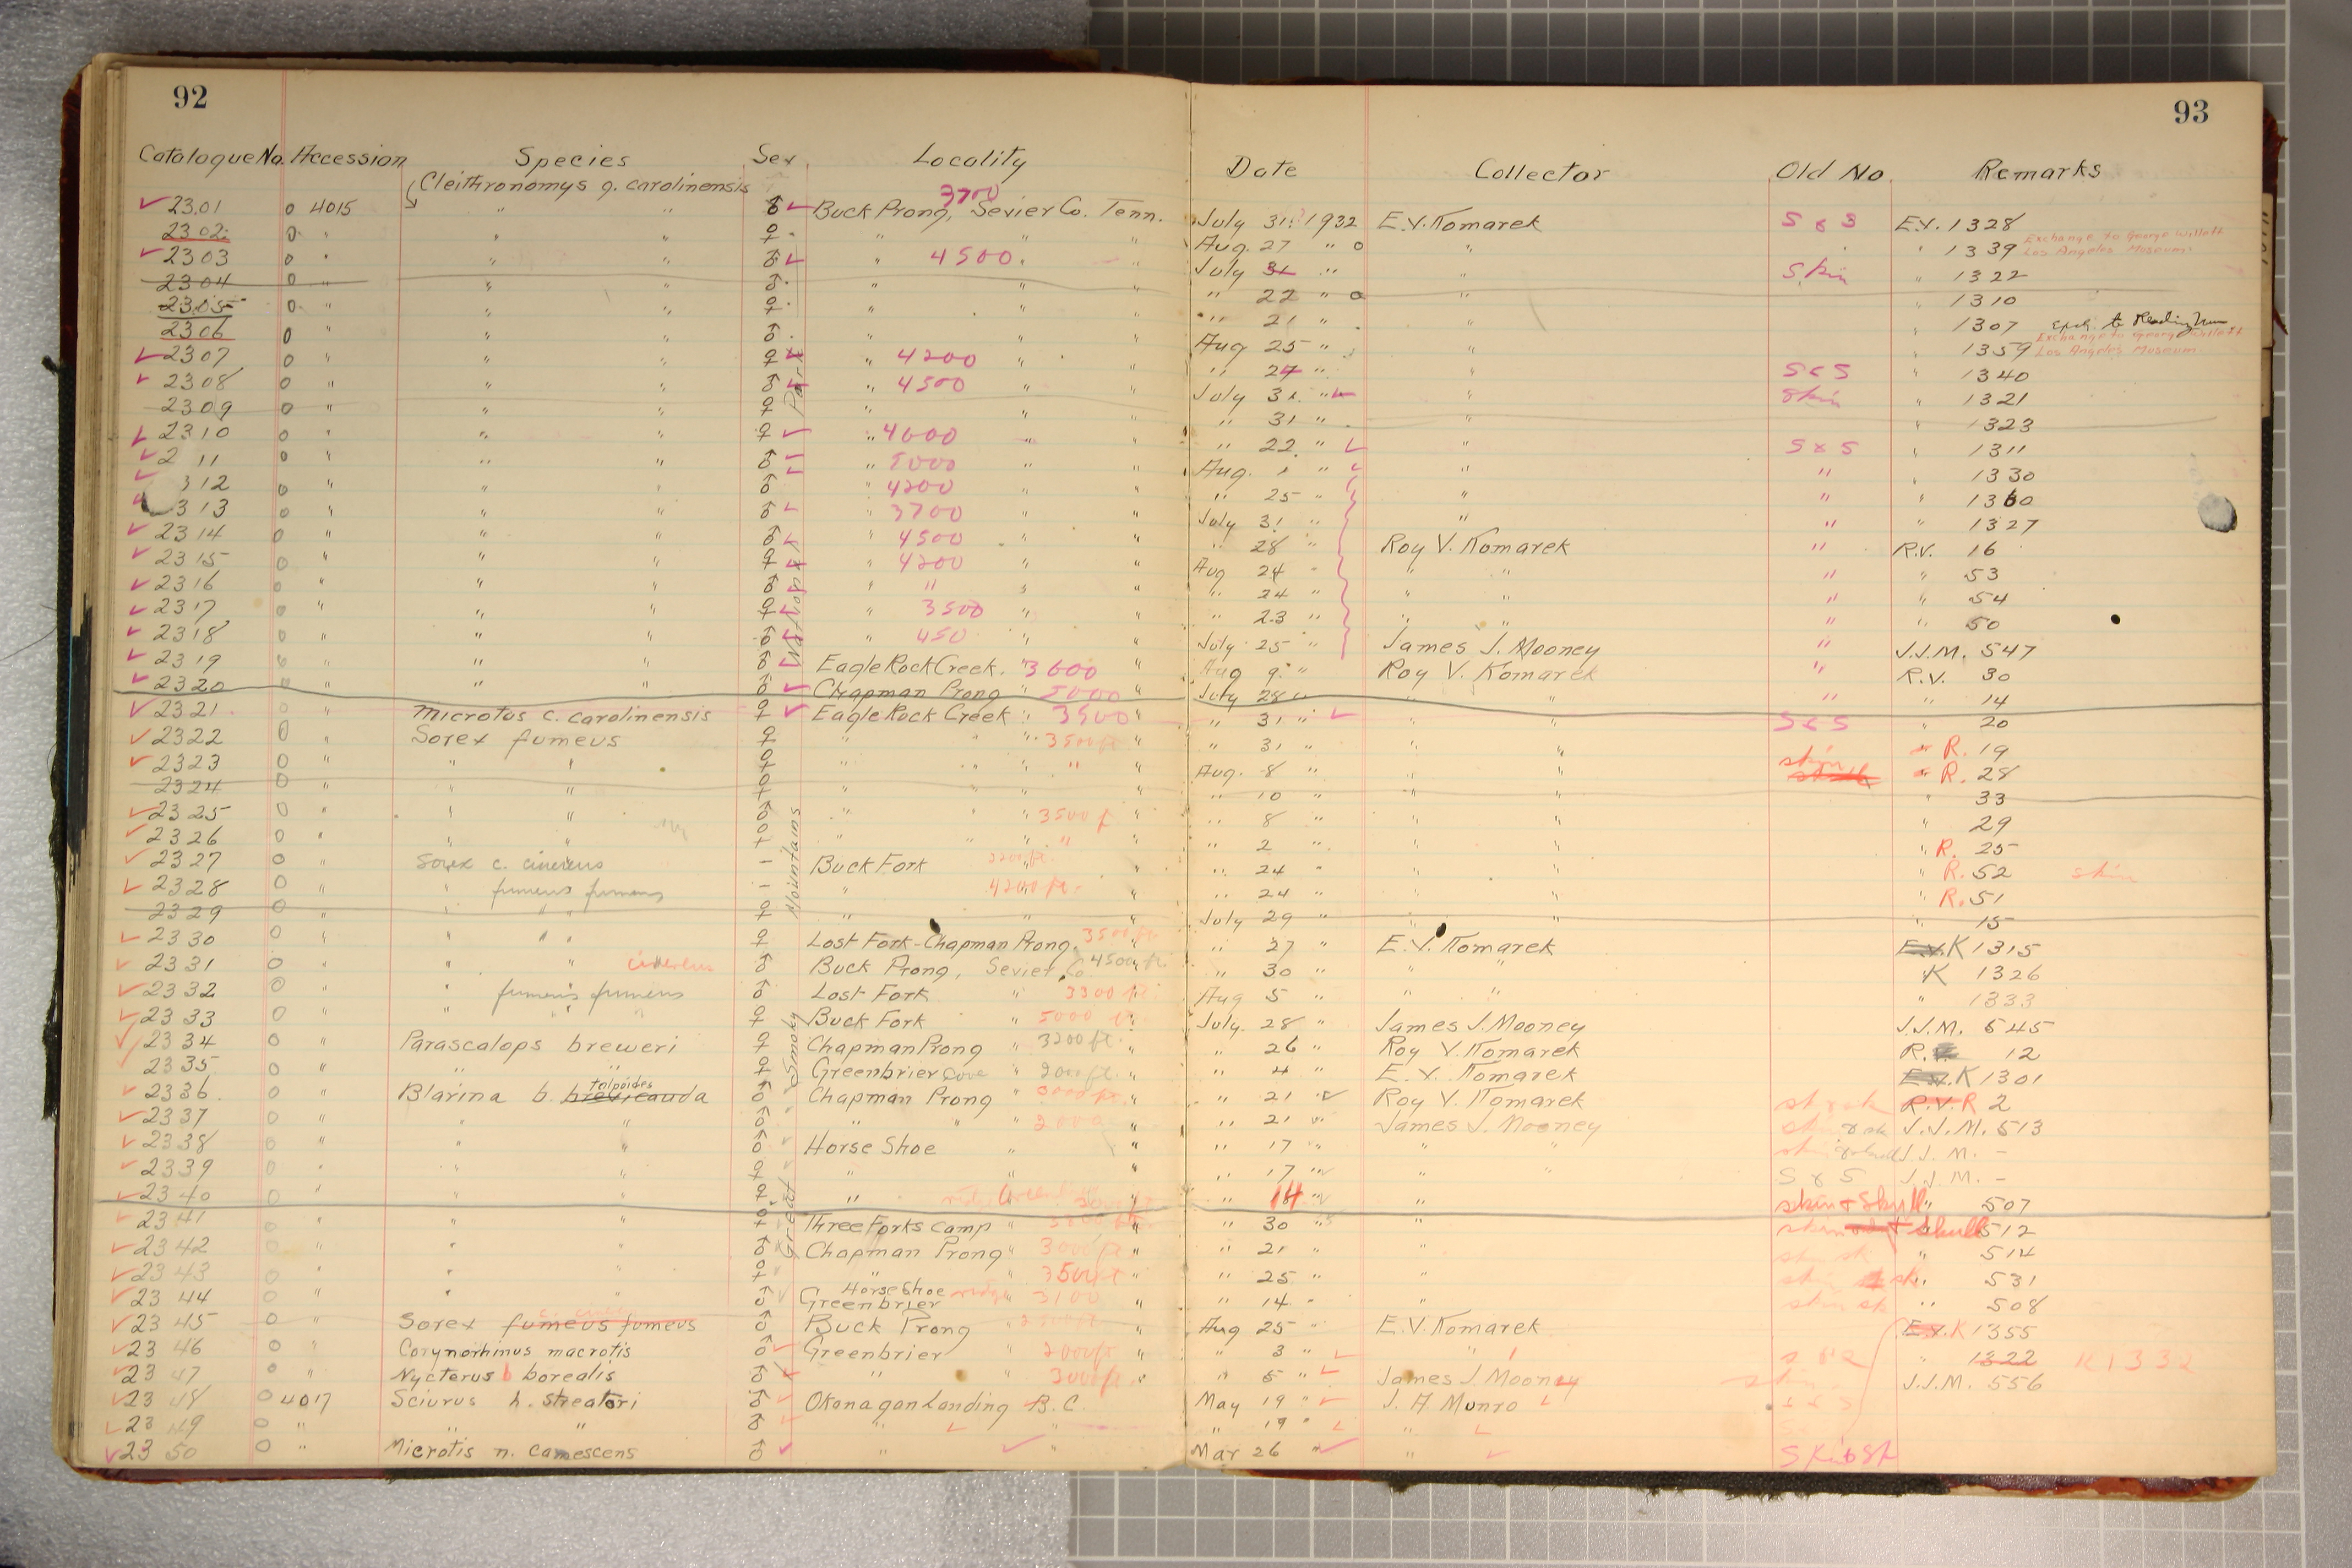 92
93
Catalogue No. Accession Species Sex Locality Date Collector Old No. Remarks
Cleithronomys g. carolinensis 3700
2301 o 4015 " " ♂ Buck Prong, Sevier Co. Tenn. July 31 1932 E.V. Komarek S & S E.V. 1328
2302 o " " " ♀ " " " Aug. 27 " " " 1339 Exchange to George Willett Los Angeles Museum
2303 o " " " ♂ " 4500 " July 31 " " Skin " 1322
2304 o " " " ♂ " " " " 22 " " " 1310
2305 o " " " ♀ " " " " 21 " " " 1307 Exch. to Reading Mus
2306 o " " " ♂ " " " Aug 25 " " " 1359 Exchange to George Willett Los Angeles Museum
2307 o " " " ♀ " 4200 " " " 27 " " S & S " 1340
2308 o " " " ♂ " 4500 " " July 31 " " Skin " 1321
2309 o " " " ♀ " " " " 31 " " " 1323
2310 o " " " ♀ " 4600 " " " 22 " " S & S " 1311
2 11 o " " " ♂ " 5000 " " Aug. 1 " " " " 1330
312 o " " " ♂ " 4200 " " " 25 " " " " 1360
313 o " " " ♂ " 3700 " " July 31 " " " " 1327
2314 o " " " ♂ " 4500 " " " 28 " Roy V. Komarek " R.V. 16
2315 o " " " ♀ " 4200 " " Aug 24 " " " " " 53
2316 o " " " ♂ " " " " " 24 " " " " " 54
2317 o " " " ♀ " 3500 " " " 23 " " " " " 50
2318 o " " " ♂ " 450 " " July 25 " James J. Mooney " J.J.M. 547
2319 o " " " ♂ Eagle Rock Creek. " 3600 " Aug 9 " Roy V. Komarek " R.V. 30
2320 o " " " ♂ Chapman Prong " 5000 " July 28 " " " " " 14
2321 o " Microtus c. carolinensis ♀ Eagle Rock Creek " 3500 " " 31 " " " S & S " 20
2322 o " Sorex fumeus ♀ " " " 3500 ft " " 31 " " " " R. 19
2323 o " " " ♀ " " " " " Aug. 8 " " " skin " R. 28
2324 o " " " ♀ " " " " " 10 " " " " 33
2325 o " " " ♂ " " " 3500 f " " 8 " " " " 29
2326 o " " " ♀ " " " " " " 2 " " " " R. 25
2327 o " Sorex c. cinereus - Buck Fork " " 24 " " " " R. 52 skin
2328 o " " fumeus fumeus - " 4200 ft. " " 24 " " " " R. 51
2329 o " " " " ♀ " " " July 29 " " " " 15
2330 o " " " " ♀ Lost Fork-Chapman Prong. 3500 ft " 27 " E.V. Komarek E.V. K 1315
2331 o " " " cinereus ♂ Buck Prong, Sevier Co. 4500 ft " 30 " " " K 1326
2332 o " " fumeus fumeus ♂ Lost Fork " 3300 ft Aug 5 " " " " 1333
2333 o " " " " ♀ Buck Fork " 5000 ft " July. 28 " James J. Mooney J.J.M. 545
2334 o " Parascalops breweri ♀ Chapman Prong " 3200 ft. " " 26 " Roy V. Komarek R. 12
2335 o " " " ♀ Greenbrier Cove " " " 4 " E.V. Komarek E.V. K 1301
2336. o " Blarina b. brevicauda talpoides ♂ Chapman Prong " 3000 ft " " 21 " Roy V. Komarek R.V. R 2
2337 o " " " ♂ " " " " 21 " James J. Mooney J.J.M. 513
2338 o " " " ♂ Horse Shoe " " " 17 " " " J.J.M. -
2339 o " " " ♀ " " " 17 " " " S & S J.J.M. -
2340 o " " " ♀ " " " 14 " " skin & skull " 507
2341 o " " " ♀ Three Forks Camp " " " 30 " " skin & skull 512
2342 o " " " ♂ Chapman Prong " 3000 ft " " 21 " " " 514
2343 o " " " ♀ " " 3500 ft " " 25 " " " 531
2344 o " " " ♂ Horse Shoe ridge Greenbrier 3100 " " 14 " " " 508
2345 o " Sorex fumeus fumeus ♂ Buck Prong " " Aug 25 " E.V. Komarek E.V. K 1355
2346 o " Corynorhinus macrotis ♂ Greenbrier " 2000 ft " " 3 " " " " 1322 K 1332
2347 o " Nycterus b borealis ♂ " " 3000 ft " " 5 " James J. Mooney J.J.M. 556
2348 o 4017 Sciurus h. streatori ♂ Okanagan Landing B.C. May 19 " J. A. Munro
2349 o " " " ♂ " " " 19 " "
2350 o " Microtis n. canescens ♂ " " Mar 26 " "
Great Smoky Mountains National Park